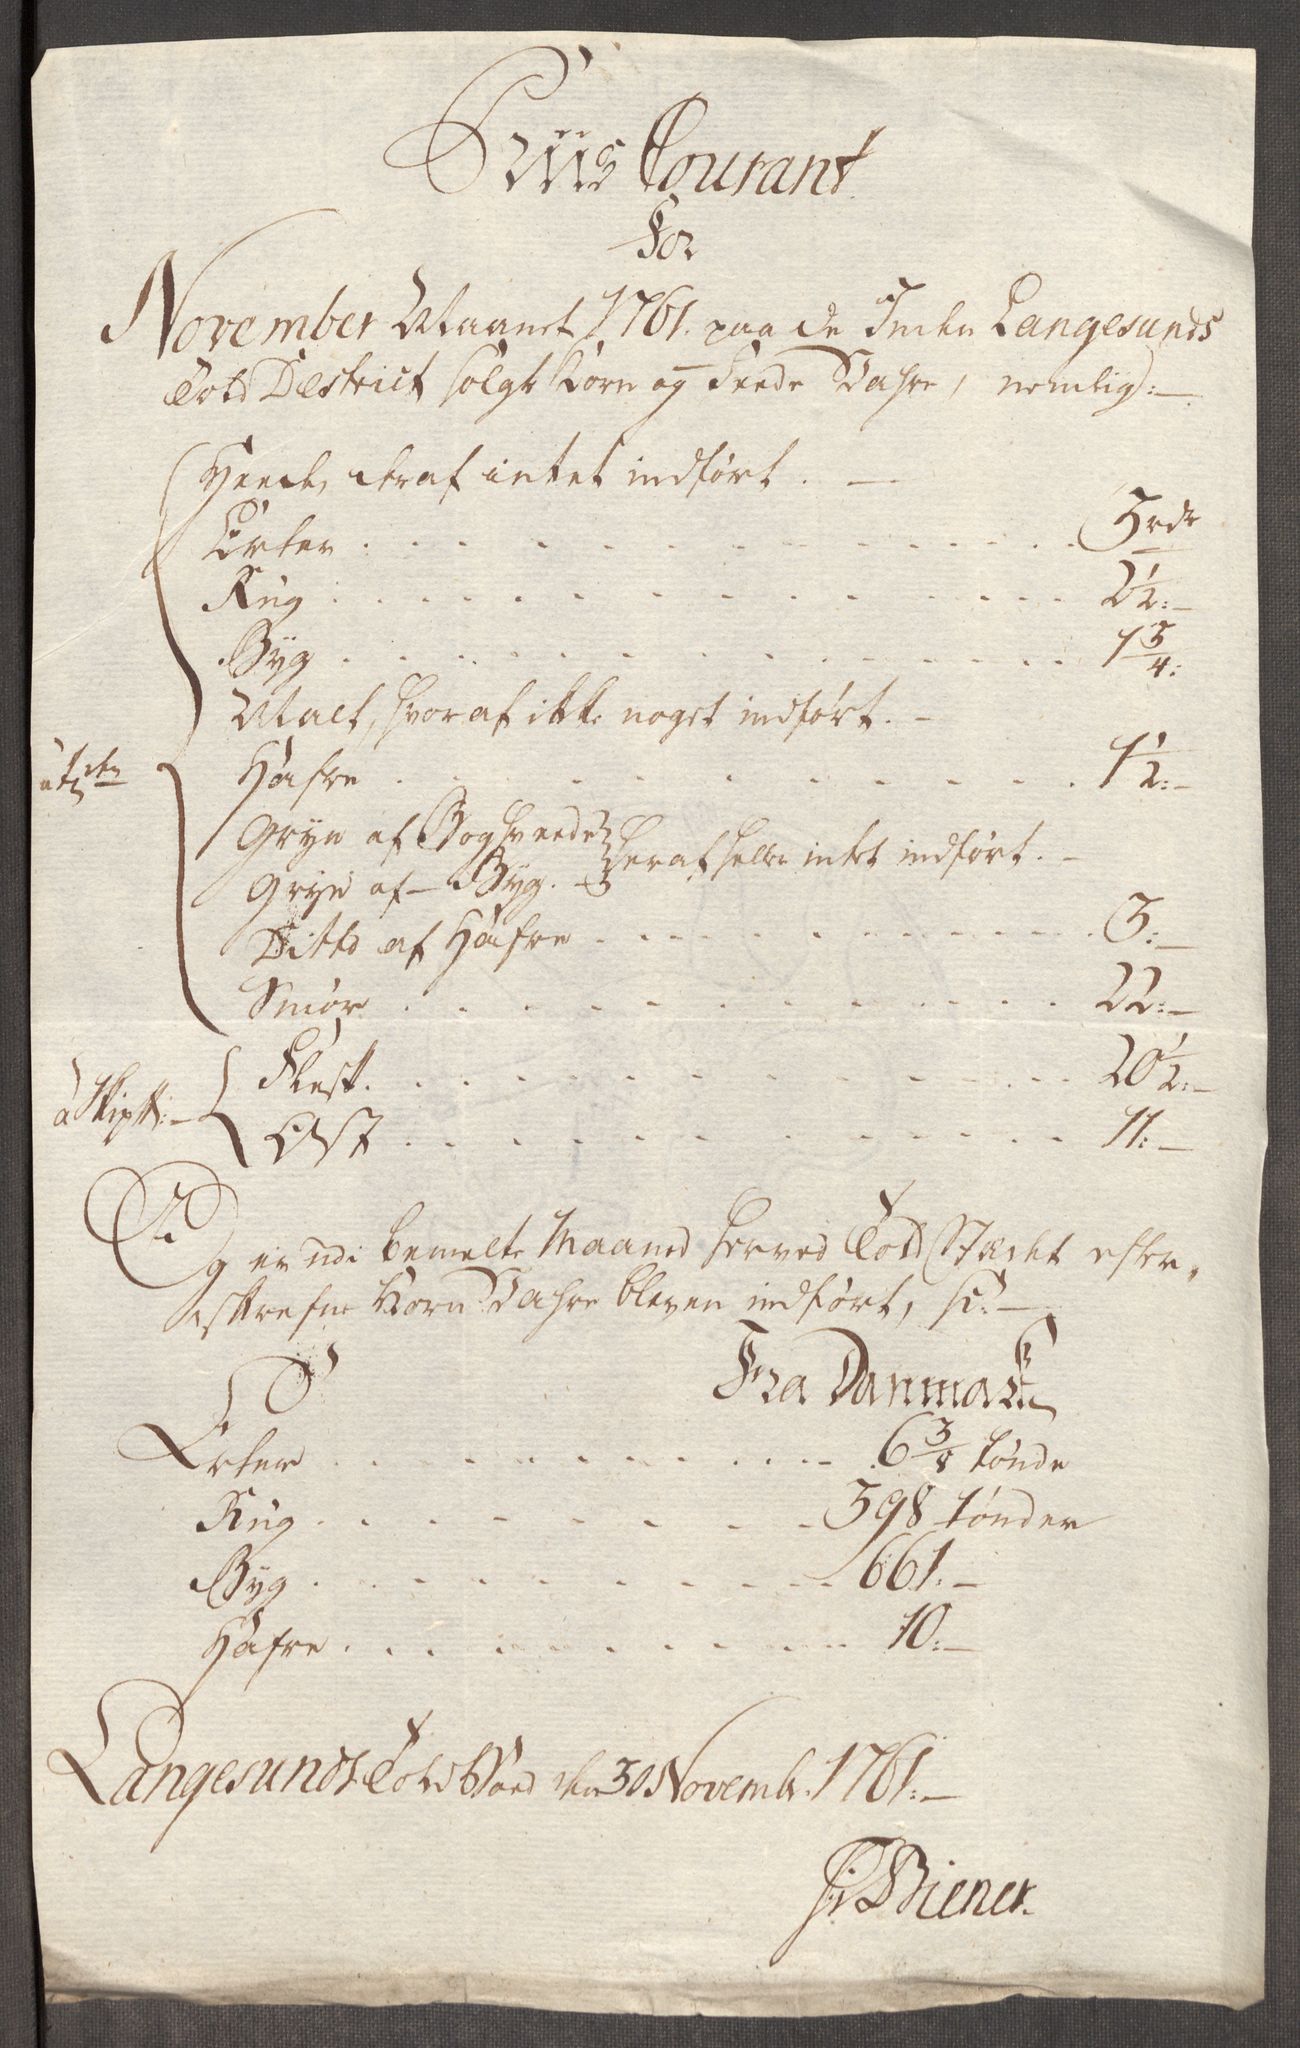 Priis Courant
For
November Maanet 1761. paa de Inden Langesunds
Told District solgte Korn og Feede Vahre, nemlig:
Hvede, deraf intet indført.
Erter . . . 3 rdr
Rug . . . 2 1/2:
Byg . . . 1 3/4:
Malt, hvoraf ikke noget indført.
Hafre . . . 1 1/2:
Gryn af Boghveede
Gryn af Byg. heraf heller intet indført.
Ditto af Hafre . . . 3:
Smør . . . 22:
à Skip℔: Flesk . . . 20 1/2:
Ost . . . 11:
Og er udi bemelte Maaned herved Told Stædet efter-
skrefne Korn Vahre bleven indført, 
Fra Danmark
Erter . . . 6 3/8 tønde
Rug . . . 598 tønder
Byg . . . 661:
Hafre . . . 10:
Langesunds Told Boed den 30 Novembr. 1761:
Biener